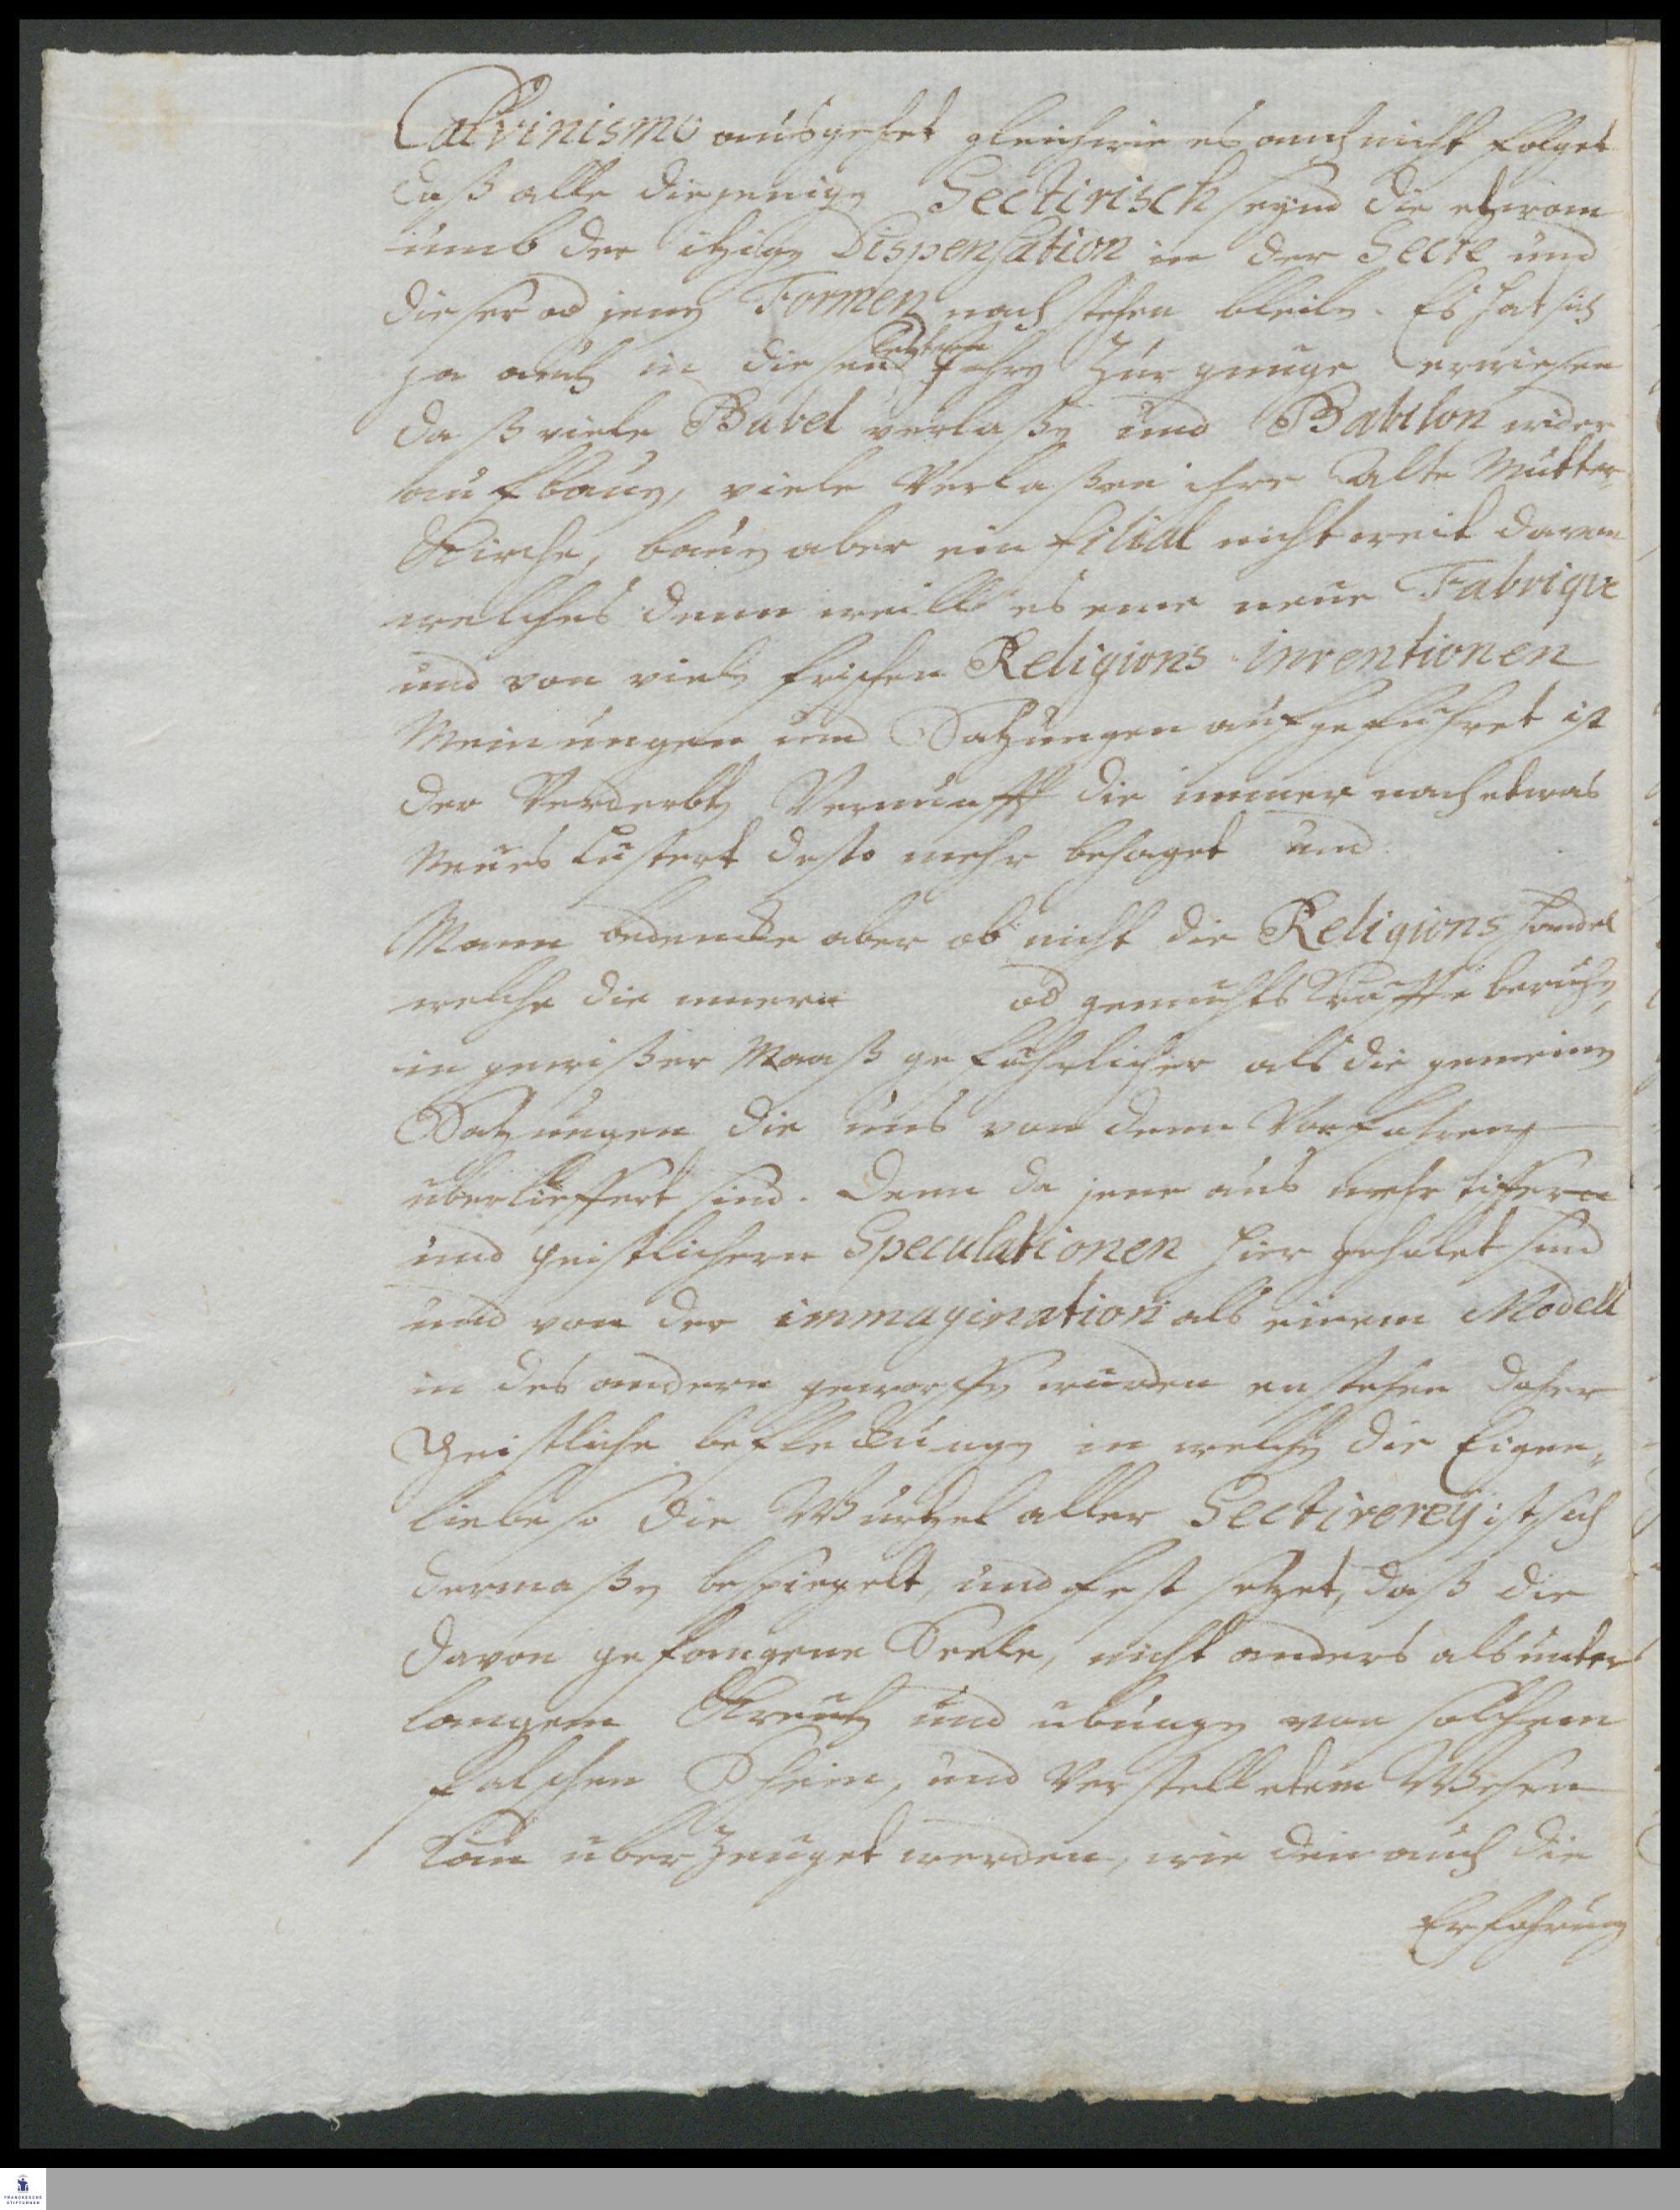 Calvinismo ausgehet gleichwie es auch nicht folget
daß alle diejenige Sectirisch seynd die etwan
umb der itzigen Dispensation in der Secte und
dieser od jenen Formen noch stehen bleiben. Es hat sich
ja auch in diesen letztern Jahren zur genuge erwiesen
daß viele Babel verlaßen und Babilon wider
aufbauen, viele Verlaßen ihre Alte Mutter-
Kirche, bauen aber ein filial nicht weit davon
welches denn weill es eine neue Fabrique
und von vielen frischen Religions-inventionen
Meinungen und Satzungen aufgeführet ist
der Verderbten Vernunfft die immer nach etwas
Neues lüstert desto mehr behaget und
Mann bedencke aber ob nicht die Religions händel
welche die innern od gemuhts Kräffte beruhen,
in gewißer Maaß gefährlicher als die gemeinen
Satzungen die uns von denn Vorfahren
überlieffert sind. Denn da jene aus mehr tiefern
und geistlichern Speculationen hier gehulet sind
und von der immagination als einem Modell
in des andern geworffen wurden enstehen daher
Geistliche befleckungen in welchen die Eigen-
liebe so die Wurtzel aller Sectirerey ist sich
dermaßen bespiegelt, und fest setzet, daß die
davon gefangene Seele, nicht anders als unter
langem Kreutz und ubungen von solchem
falschen Schein, und Verstelletem Wesen
kan uberzeuget werden, wie den auch die
Erfahrung
FRANCKESCHE
STIFTUNGEN